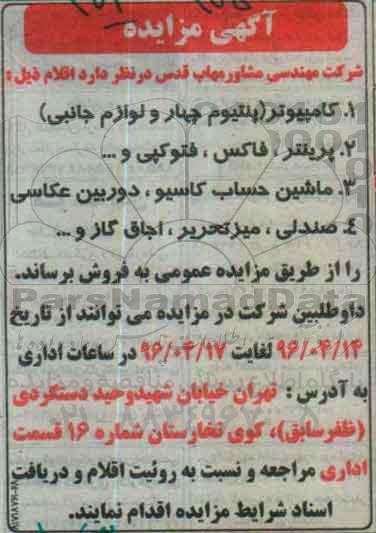 آگهی مزایده
شرکت مهندسی مشاور مهاب قدس در نظر دارد اقلام ذیل:
۱. کامپیوتر(پنتیوم چهار و لوازم جانبی)
۲. پرینتر ، فاکس ، فتوکپی و ...
۳. ماشین حساب کاسیو ، دوربین عکاسی
۴. صندلی ، میزتحریر ، اجاق گاز و ...
را از طریق مزایده عمومی به فروش برساند.
داوطلبین شرکت در مزایده می توانند از تاریخ
۹۶/۰۴/۱۴ لغایت ۹۶/۰۴/۱۷ در ساعات اداری
به آدرس : تهران خیابان شهیدوحید دستگردی
(ظفرسابق)، کوی تخارستان شماره ۱۶ قسمت
اداری مراجعه و نسبت به روئیت اقلام و دریافت
اسناد شرایط مزایده اقدام نمایند.
ParsNamadData